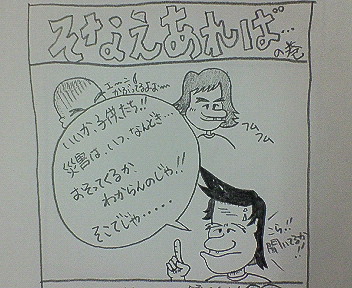 そなえあれば…
の巻
いいか、子供たち!!
災害は、いつ、なんどき…
おそってくるか
わからんのじゃ!!
そこでじゃ・・・・・
フムフム
こら!!
聞いてるか
!!